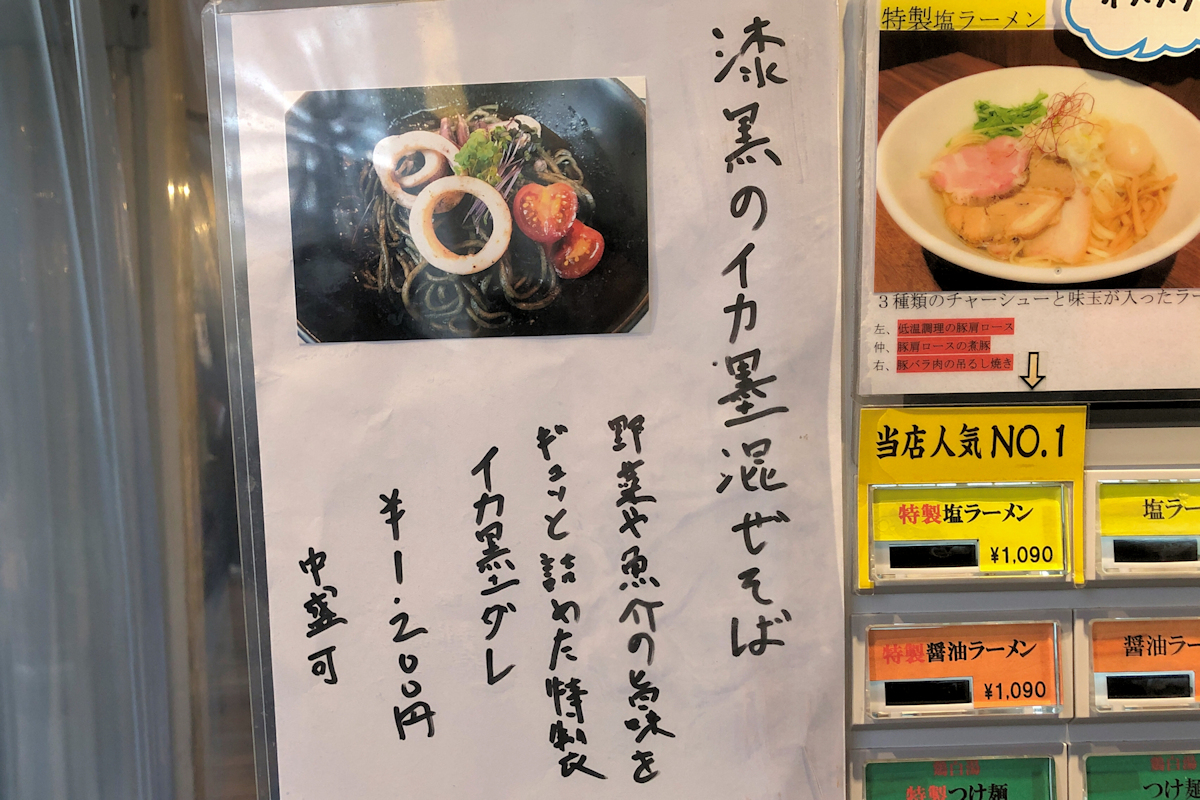 漆黒のイカ墨混ぜそば
野菜や魚介の旨味を
ギュッと詰めた特製
イカ墨ダレ
¥1.200円
中盛可
特製塩ラーメン
3種類のチャーシューと味玉が入ったラー
左、低温調理の豚肩ロース
仲、豚肩ロースの煮豚
右、豚バラ肉の吊るし焼き
当店人気NO.1
特製塩ラーメン
¥1,090
塩ラー
特製醤油ラーメン
¥1,090
醤油ラー
特製つけ麺
つけ麺